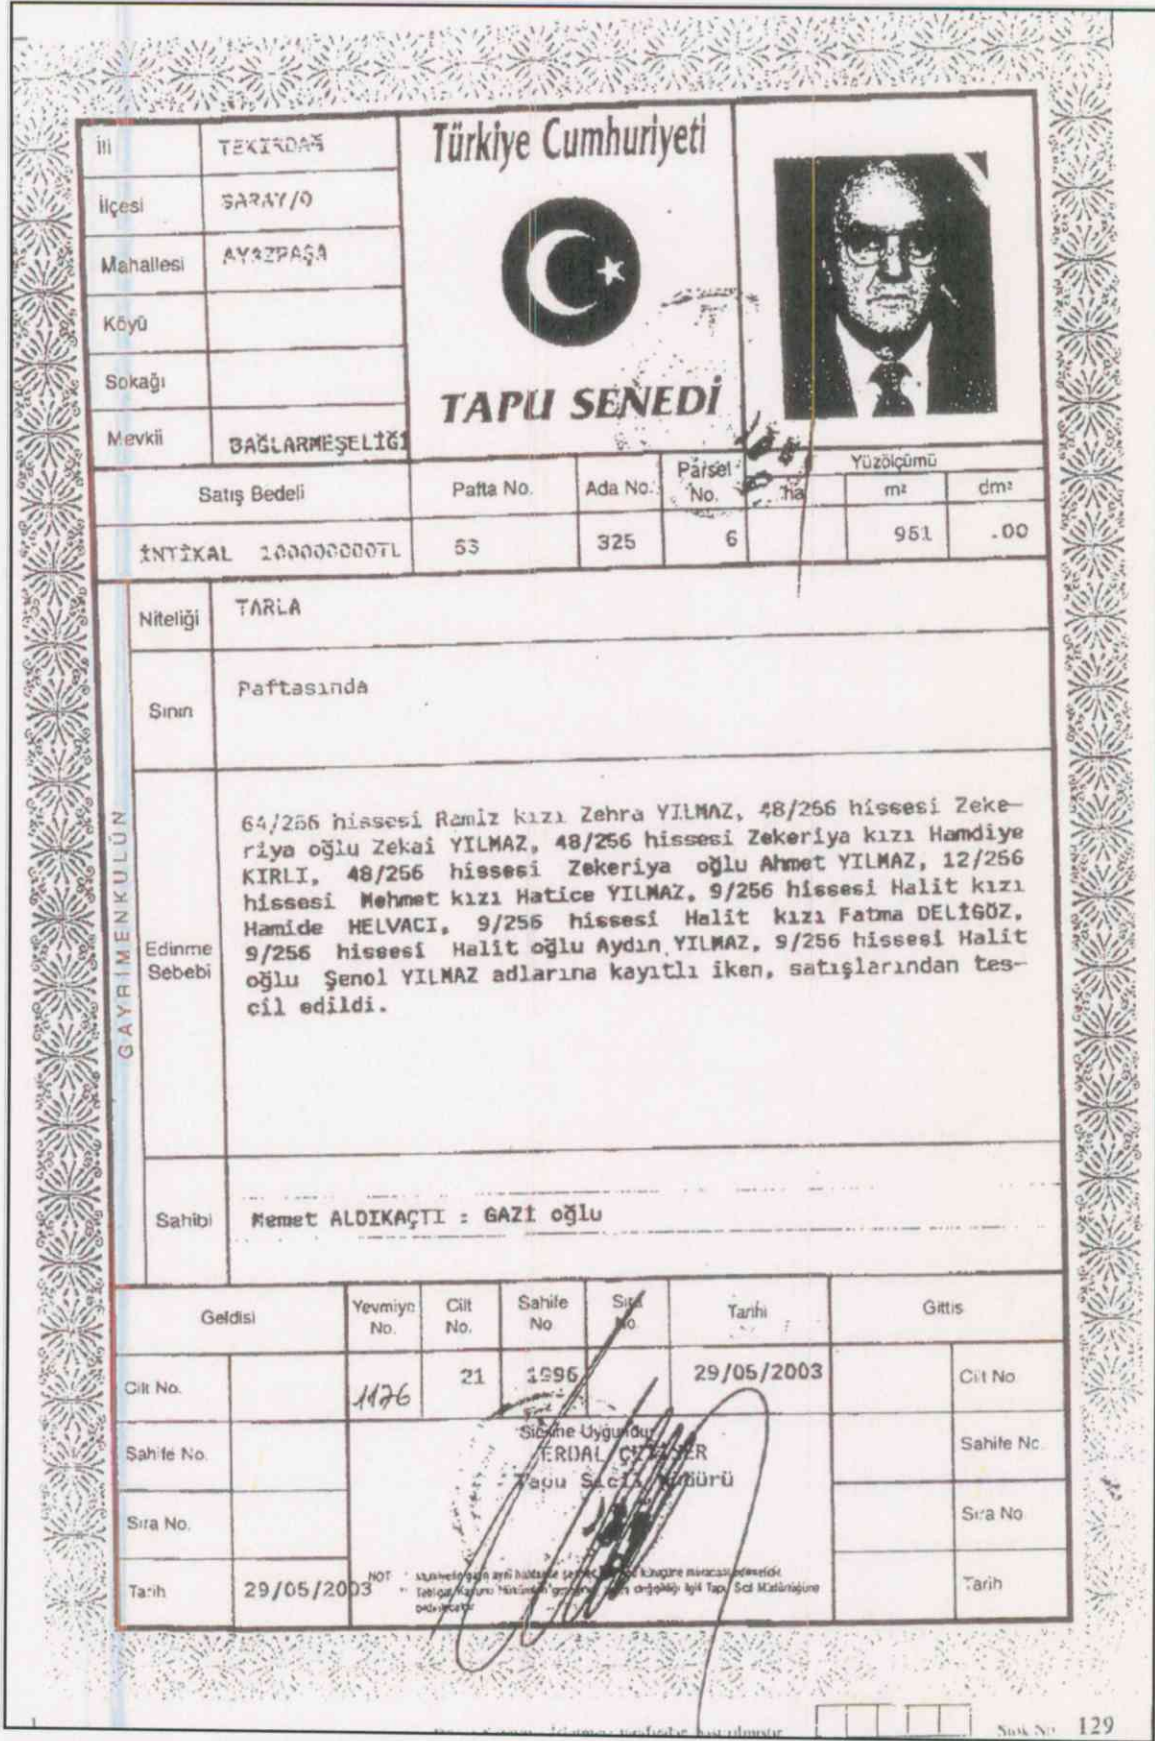 İli TEKİRDAĞ
İlçesi SARAY/O
Mahallesi AYAZPAŞA
Köyü
Sokağı
Mevkii BAĞLARMEŞELİĞİ
Türkiye Cumhuriyeti
TAPU SENEDİ
Satış Bedeli Pafta No. Ada No. Parsel No. Yüzölçümü ha m² dm²
İNTİKAL 53 325 6 951 .00
GAYRİMENKULÜN
Niteliği TARLA
Sınırı Paftasında
Edinme Sebebi
64/256 hissesi Ramiz kızı Zehra YILMAZ, 48/256 hissesi Zeke-
riya oğlu Zekai YILMAZ, 48/256 hissesi Zekeriya kızı Hamdiye
KIRLI, 48/256 hissesi Zekeriya oğlu Ahmet YILMAZ, 12/256
hissesi Mehmet kızı Hatice YILMAZ, 9/256 hissesi Halit kızı
Hamide HELVACI, 9/256 hissesi Halit kızı Fatma DELİGÖZ,
9/256 hissesi Halit oğlu Aydın YILMAZ, 9/256 hissesi Halit
oğlu Şenol YILMAZ adlarına kayıtlı iken, satışlarından tes-
cil edildi.
Sahibi Memet ALDIKAÇTI : GAZİ oğlu
Geldisi Yevmiye No. Cilt No. Sahife No Sıra No Tarihi Gittis
Cilt No. 1176 21 1996 29/05/2003 Cilt No
Siciline Uygundur
Sahife No. ERDAL Sahife No.
Tapu Sicil Müdürü
Sıra No. Sıra No
NOT
Tarih 29/05/2003 Tarih
Stok No 129